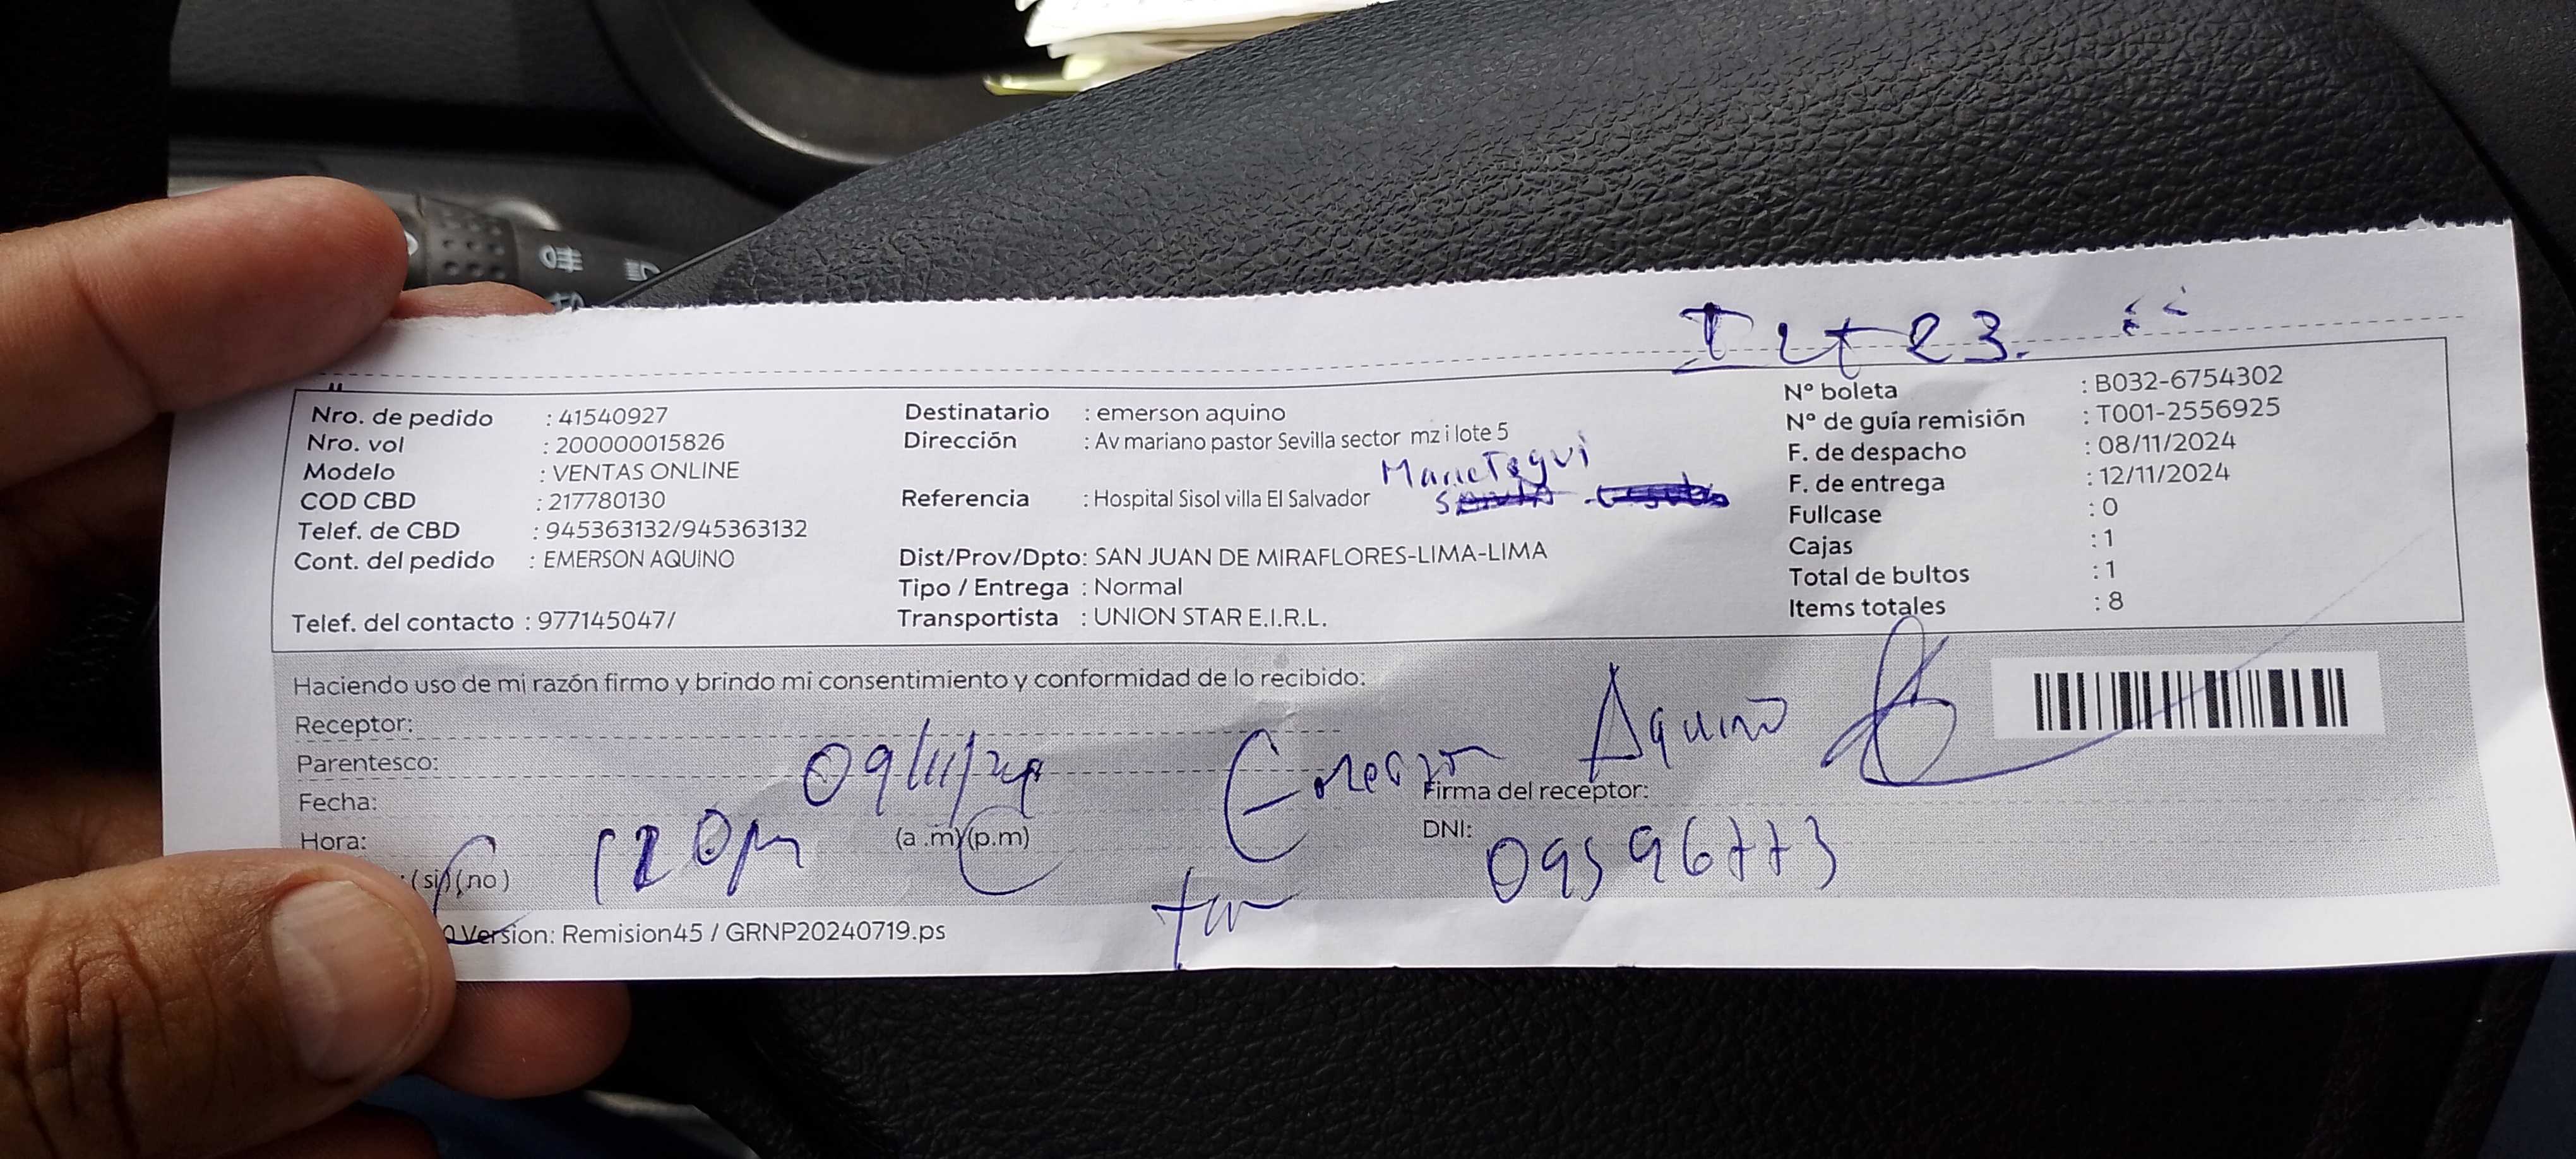 I Lt 23.
Nro. de pedido : 41540927
Nro. vol : 200000015826
Modelo : VENTAS ONLINE
COD CBD : 217780130
Telef. de CBD : 945363132/945363132
Cont. del pedido : EMERSON AQUINO
Telef. del contacto : 977145047/
Destinatario : emerson aquino
Dirección : Av mariano pastor Sevilla sector mz i lote 5
Marietegui
Referencia : Hospital Sisol villa El Salvador
Dist/Prov/Dpto: SAN JUAN DE MIRAFLORES-LIMA-LIMA
Tipo / Entrega : Normal
Transportista : UNION STAR E.I.R.L.
N° boleta : B032-6754302
N° de guía remisión : T001-2556925
F. de despacho : 08/11/2024
F. de entrega : 12/11/2024
Fullcase : 0
Cajas : 1
Total de bultos : 1
Items totales : 8
Haciendo uso de mi razón firmo y brindo mi consentimiento y conformidad de lo recibido:
Receptor:
Parentesco:
Fecha: 09/11/24
Hora: 120pm (a .m)(p.m)
: (si) (no)
Emerson Aquino
Firma del receptor:
DNI: 09596773
Version: Remision45 / GRNP20240719.ps